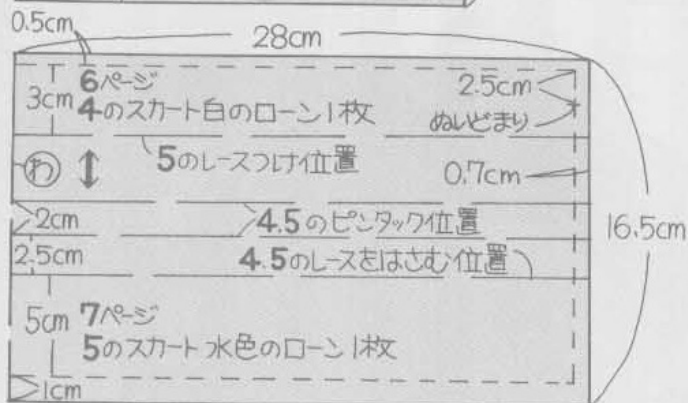 0.5cm
28cm
6ページ
4のスカート白のローン1枚
3cm
2.5cm
ぬいどまり
5のレースつけ位置
わ
0.7cm
2cm
4.5のピンタック位置
16.5cm
2.5cm
4.5のレースをはさむ位置
5cm
7ページ
5のスカート水色のローン1枚
1cm